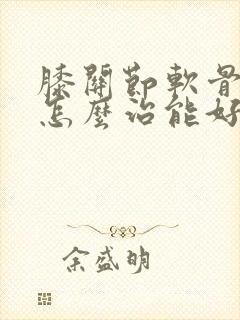 膝關節軟骨
怎麼治能好
余盛明